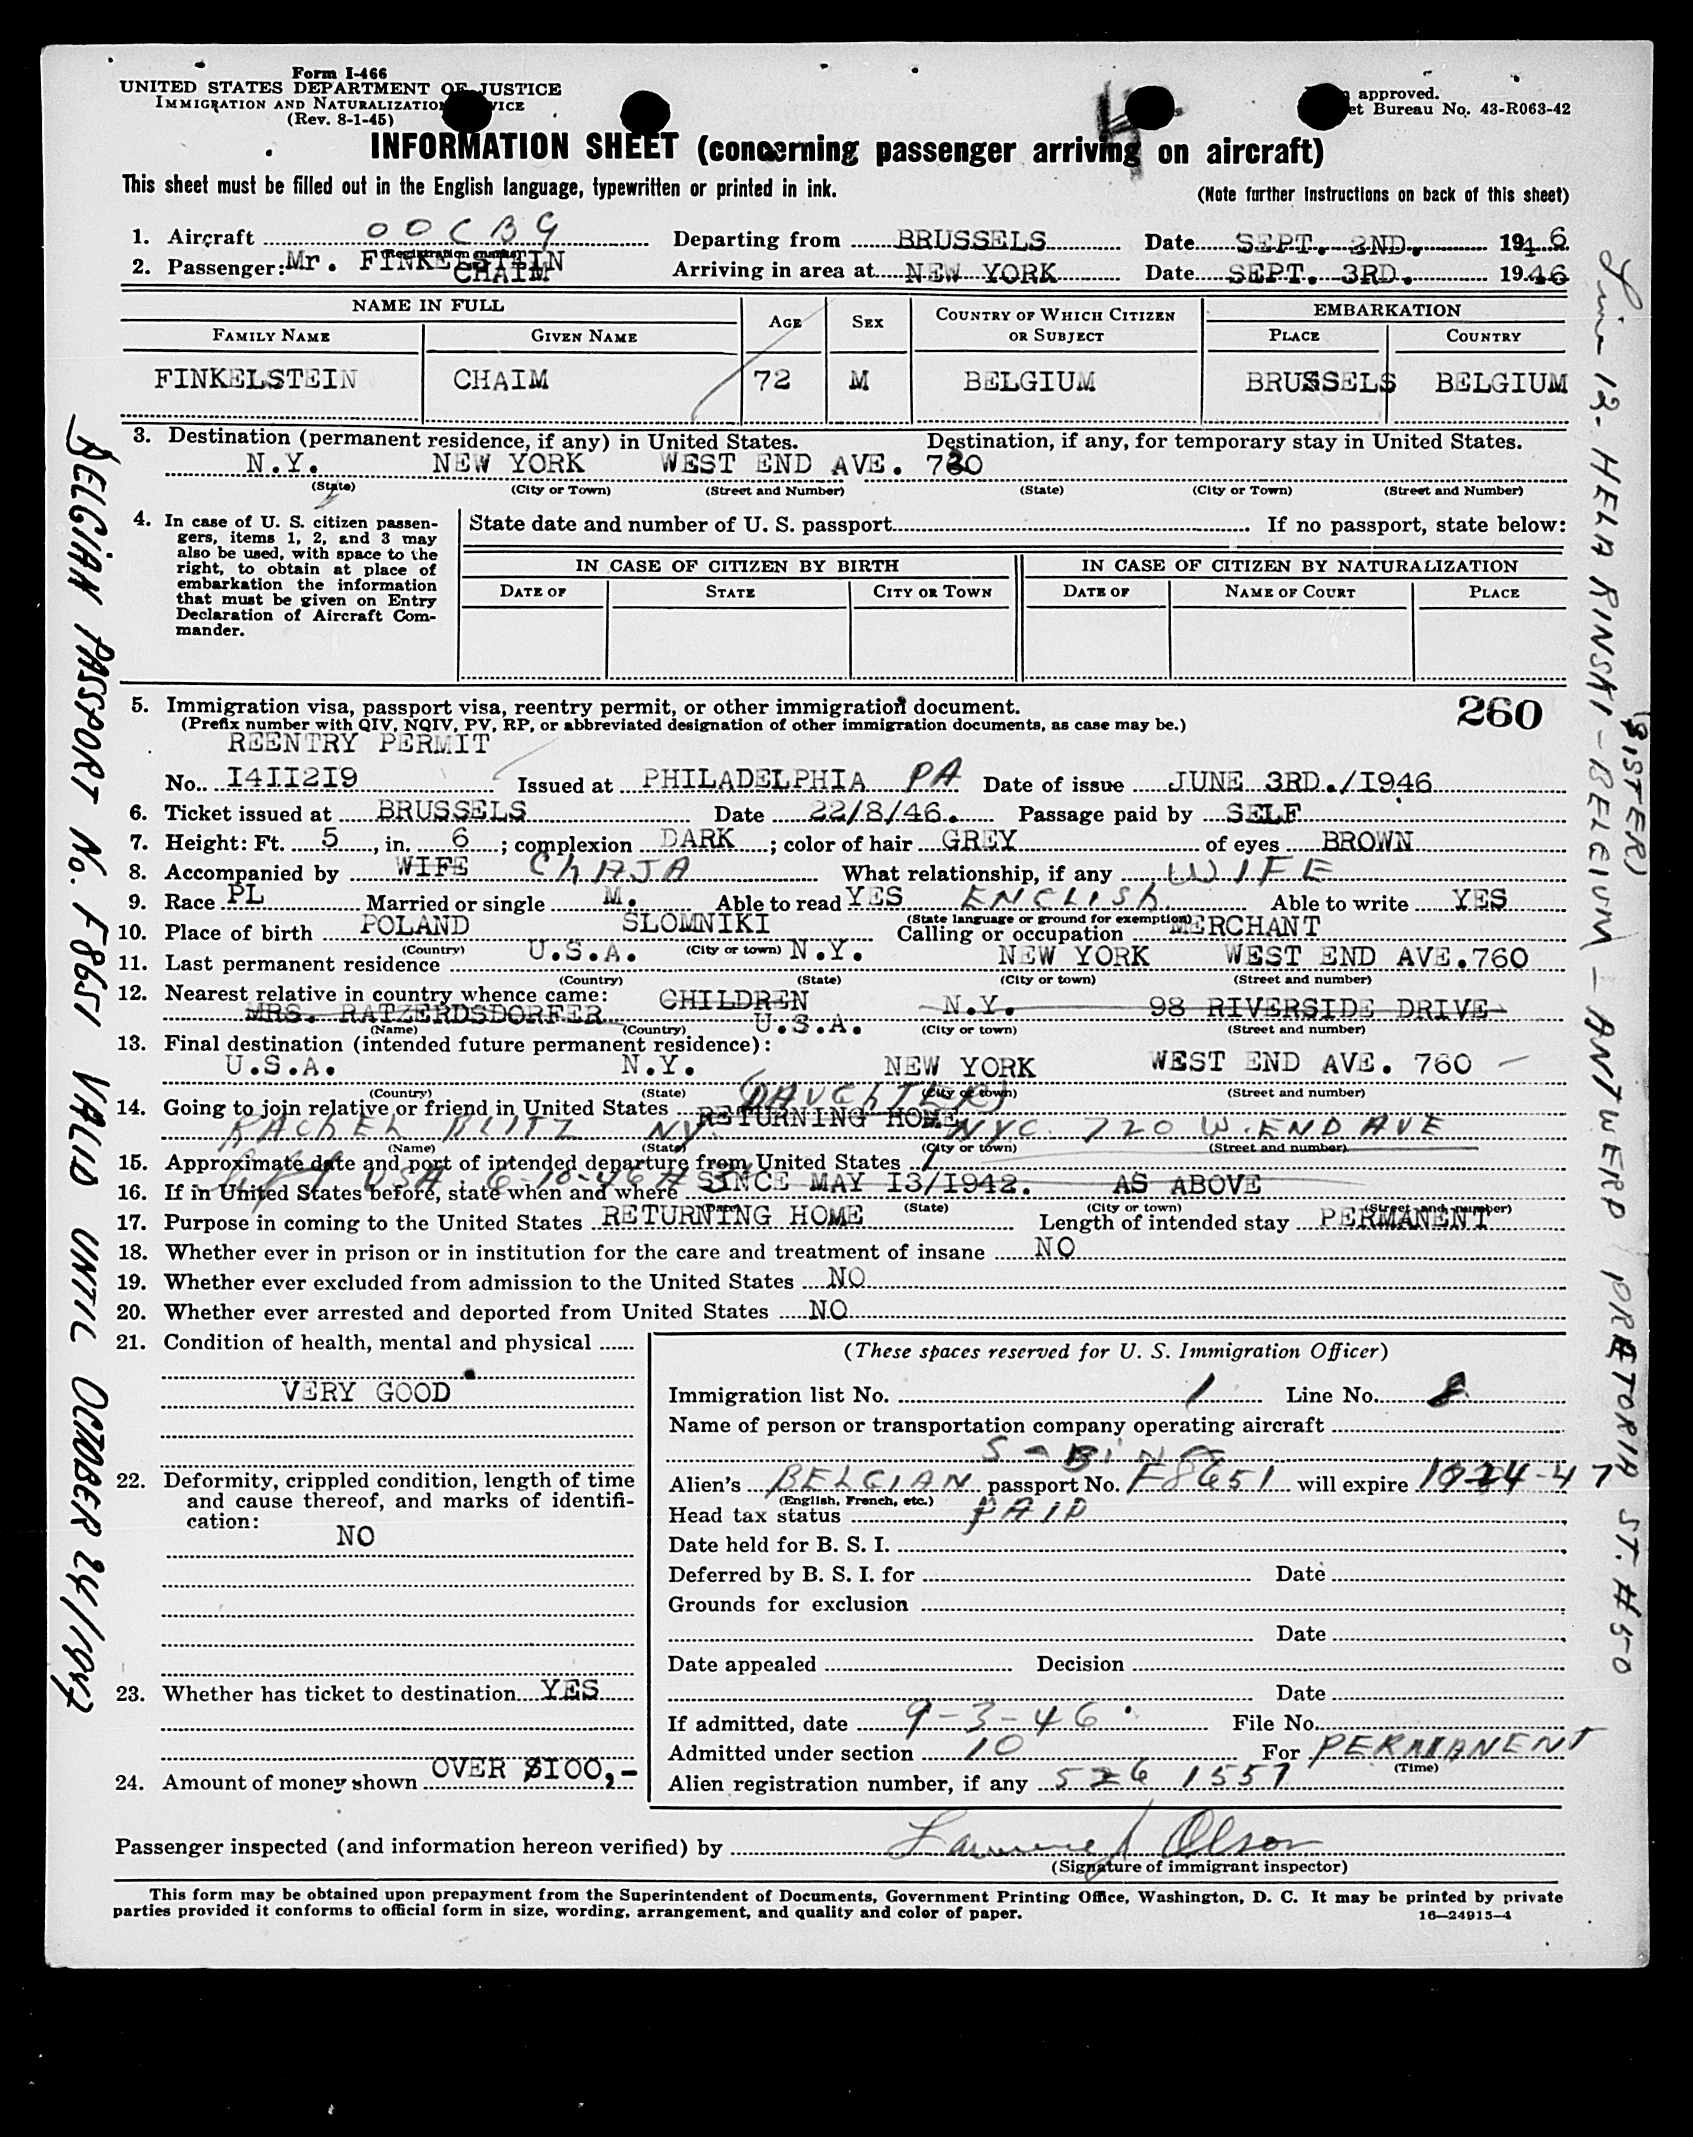 Form I-466
UNITED STATES DEPARTMENT OF JUSTICE
IMMIGRATION AND NATURALIZATION SERVICE
(Rev. 8-1-45)
approved.
Bureau No. 43-R063-42
INFORMATION SHEET (concerning passenger arriving on aircraft)
This sheet must be filled out in the English language, typewritten or printed in ink.
(Note further instructions on back of this sheet)
1. Aircraft OOCBG Departing from BRUSSELS Date SEPT. 2ND. 1946
(Registration marks)
2. Passenger: Mr. FINKELSTEIN CHAIM Arriving in area at NEW YORK Date SEPT. 3RD. 1946
NAME IN FULL AGE SEX COUNTRY OF WHICH CITIZEN OR SUBJECT EMBARKATION
FAMILY NAME GIVEN NAME PLACE COUNTRY
FINKELSTEIN CHAIM 72 M BELGIUM BRUSSELS BELGIUM
3. Destination (permanent residence, if any) in United States. Destination, if any, for temporary stay in United States.
N.Y. NEW YORK WEST END AVE. 720
(State) (City or Town) (Street and Number) (State) (City or Town) (Street and Number)
4. In case of U. S. citizen passen-
gers, items 1, 2, and 3 may
also be used, with space to the
right, to obtain at place of
embarkation the information
that must be given on Entry
Declaration of Aircraft Com-
mander.
State date and number of U. S. passport If no passport, state below:
IN CASE OF CITIZEN BY BIRTH IN CASE OF CITIZEN BY NATURALIZATION
DATE OF STATE CITY OR TOWN DATE OF NAME OF COURT PLACE
5. Immigration visa, passport visa, reentry permit, or other immigration document.
260
(Prefix number with QIV, NQIV, PV, RP, or abbreviated designation of other immigration documents, as case may be.)
REENTRY PERMIT
No. I4II2I9 Issued at PHILADELPHIA PA Date of issue JUNE 3RD./I946
6. Ticket issued at BRUSSELS Date 22/8/46. Passage paid by SELF
7. Height: Ft. 5, in. 6; complexion DARK; color of hair GREY of eyes BROWN
8. Accompanied by WIFE CHAJA What relationship, if any WIFE
9. Race PL Married or single M. Able to read YES ENGLISH Able to write YES
(State language or ground for exemption)
10. Place of birth POLAND SLOMNIKI Calling or occupation MERCHANT
(Country) (City or town)
11. Last permanent residence U.S.A. N.Y. NEW YORK WEST END AVE.760
(Country) (State) (City or town) (Street and number)
12. Nearest relative in country whence came: CHILDREN
MRS. RATZERDSDORFER U.S.A. N.Y. 98 RIVERSIDE DRIVE
(Name) (Country) (City or town) (Street and number)
13. Final destination (intended future permanent residence):
U.S.A. N.Y. NEW YORK WEST END AVE. 760
(Country) (State) (City or town) (Street and number)
14. Going to join relative or friend in United States RETURNING HOME (DAUGHTER)
RACHEL BLITZ NY. NYC. 720 W. END AVE
(Name) (State) (City or town) (Street and number)
15. Approximate date and port of intended departure from United States
left USA 6-10-46
16. If in United States before, state when and where SINCE MAY I3/I942. AS ABOVE
(Date) (State) (City or town) (Street and number)
17. Purpose in coming to the United States RETURNING HOME Length of intended stay PERMANENT
18. Whether ever in prison or in institution for the care and treatment of insane NO
19. Whether ever excluded from admission to the United States NO
20. Whether ever arrested and deported from United States NO
21. Condition of health, mental and physical
VERY GOOD
22. Deformity, crippled condition, length of time
and cause thereof, and marks of identifi-
cation:
NO
23. Whether has ticket to destination YES
24. Amount of money shown OVER $I00,-
(These spaces reserved for U. S. Immigration Officer)
Immigration list No. 1 Line No. 8
Name of person or transportation company operating aircraft
Alien's BELGIAN passport No. F8651 will expire 10-24-47
(English, French, etc.)
Head tax status PAID
Date held for B. S. I.
Deferred by B. S. I. for Date
Grounds for exclusion
Date
Date appealed Decision
Date
If admitted, date 9-3-46 File No.
Admitted under section 10 For PERMANENT
(Time)
Alien registration number, if any 526 1557
Passenger inspected (and information hereon verified) by Olson
(Signature of immigrant inspector)
This form may be obtained upon prepayment from the Superintendent of Documents, Government Printing Office, Washington, D. C. It may be printed by private
parties provided it conforms to official form in size, wording, arrangement, and quality and color of paper.
16—24915-4
BELGIAN PASSPORT No. F8651 VALID UNTIL OCTOBER 24/1947
Line 12- HELA RINSKI - BELGIUM - ANTWERP
(SISTER)
ST. #50